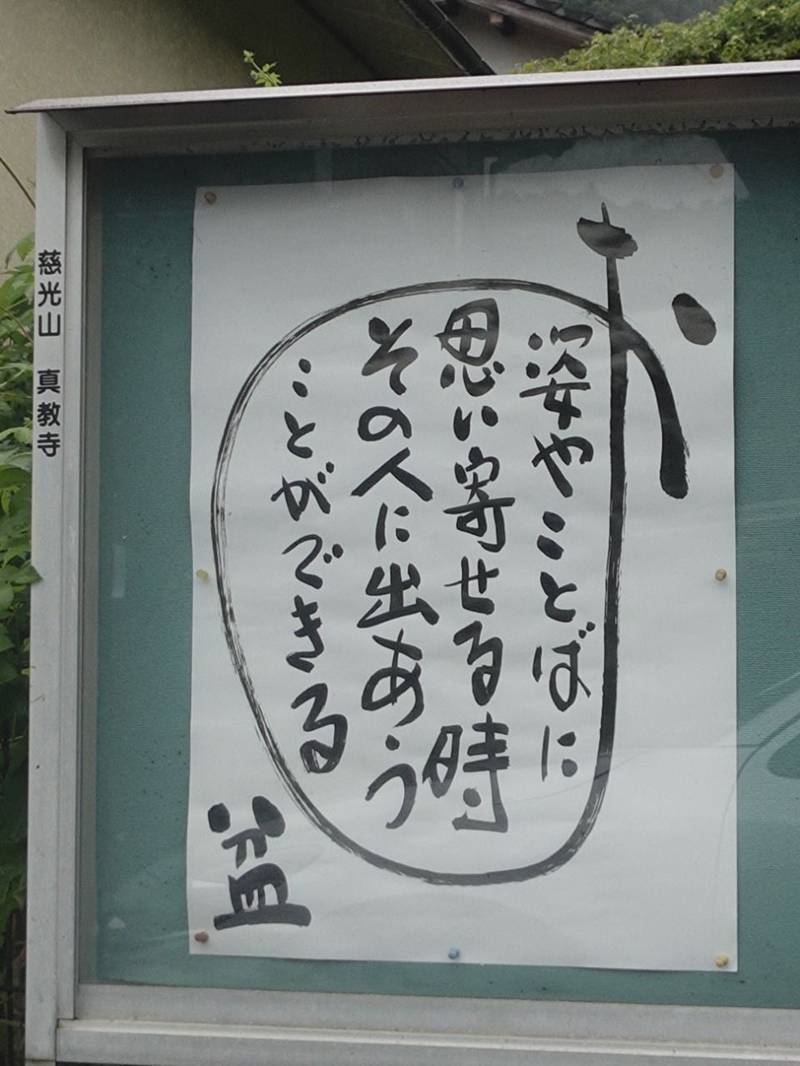 お
姿やことばに
思い寄せる時
その人に出あう
ことができる
盆
慈光山 真教寺